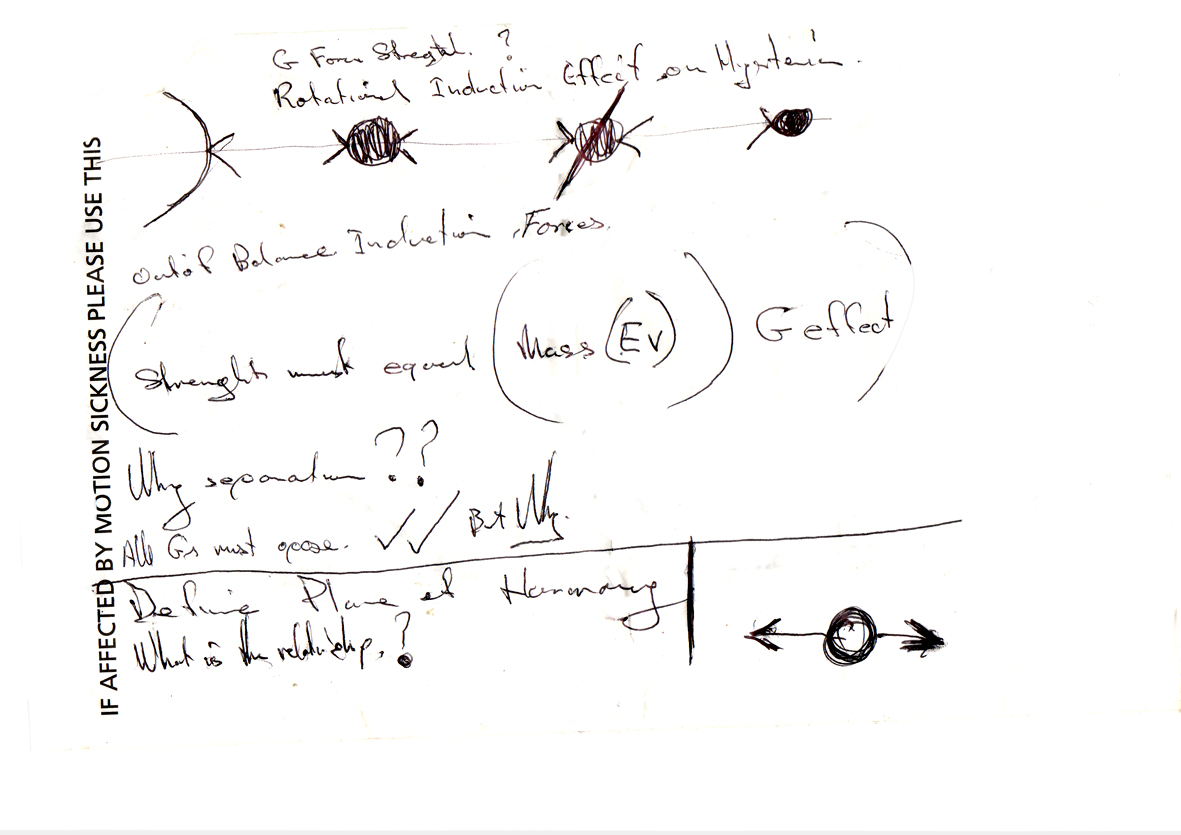 G Force Strength. ?
Rotational Induction Effect on Hysteria.
Out of Balance Induction Forces.
(Strenghts must equal (Mass (Ev)) G effect)
Why separation ??
All Gs must opose. ✓✓ But Why.
Define Plane of Harmony
What is the relatiship. ?
IF AFFECTED BY MOTION SICKNESS PLEASE USE THIS